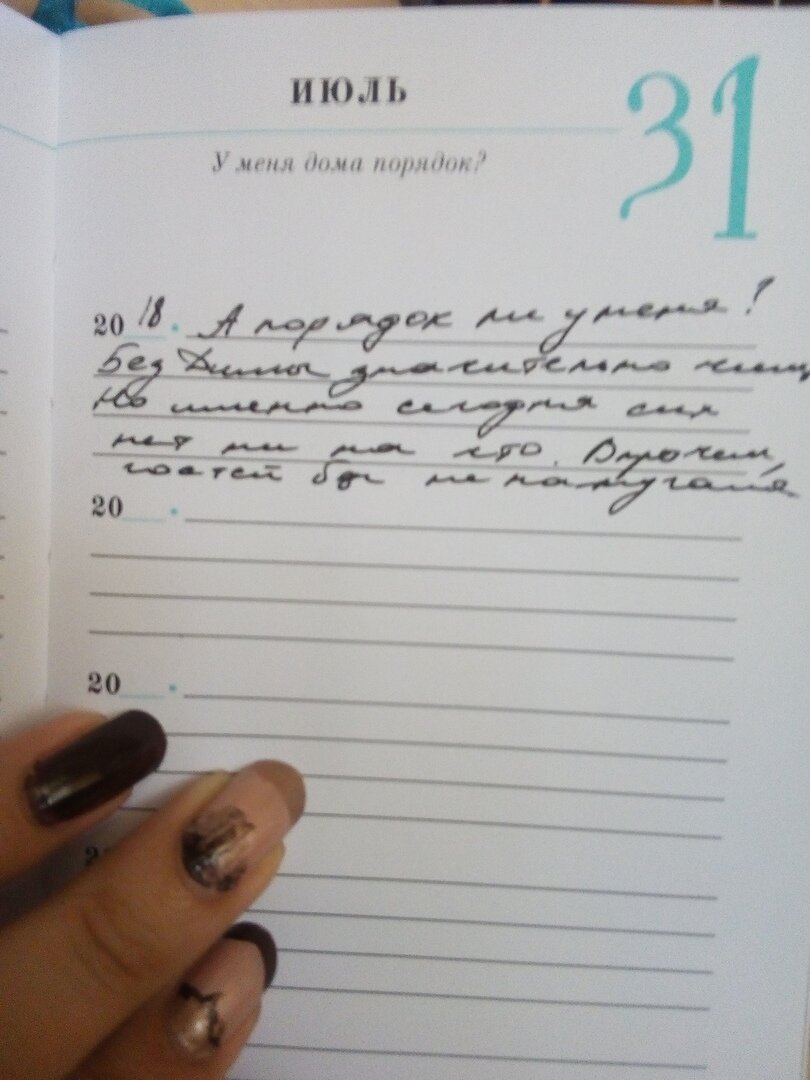 ИЮЛЬ
31
У меня дома порядок?
20 18. А порядок ли у меня?
Без Димы значительно чище
Но именно сегодня сил
нет ни на что. Впрочем,
гостей бы не напугалия
20 .
20 .